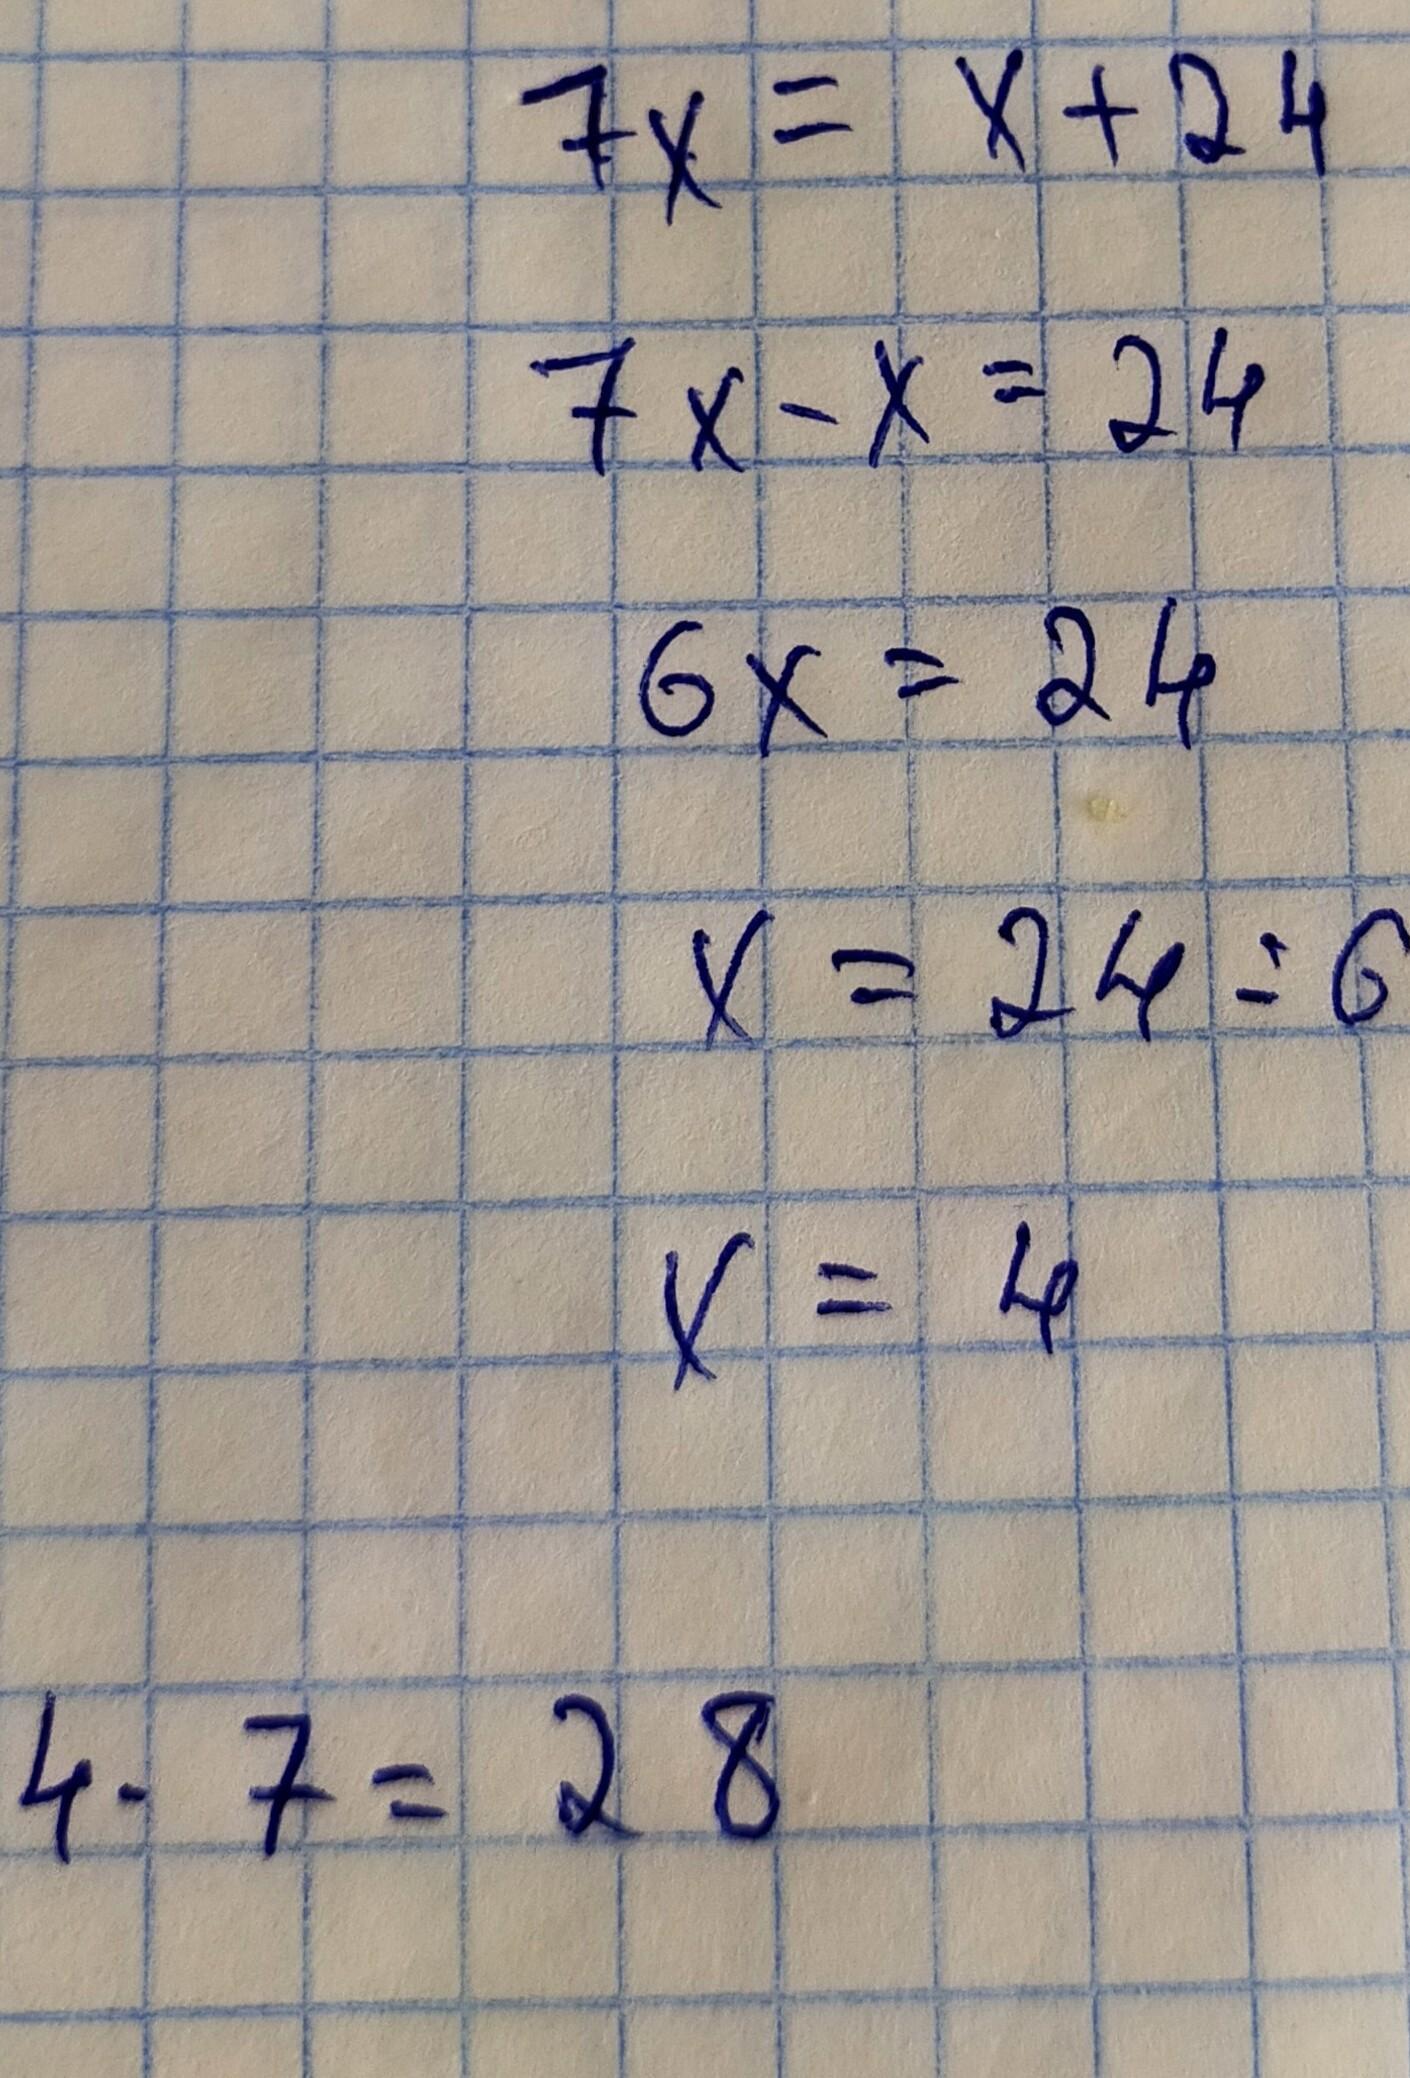 7x = x + 24
7x - x = 24
6x = 24
x = 24 : 6
x = 4
4 · 7 = 28